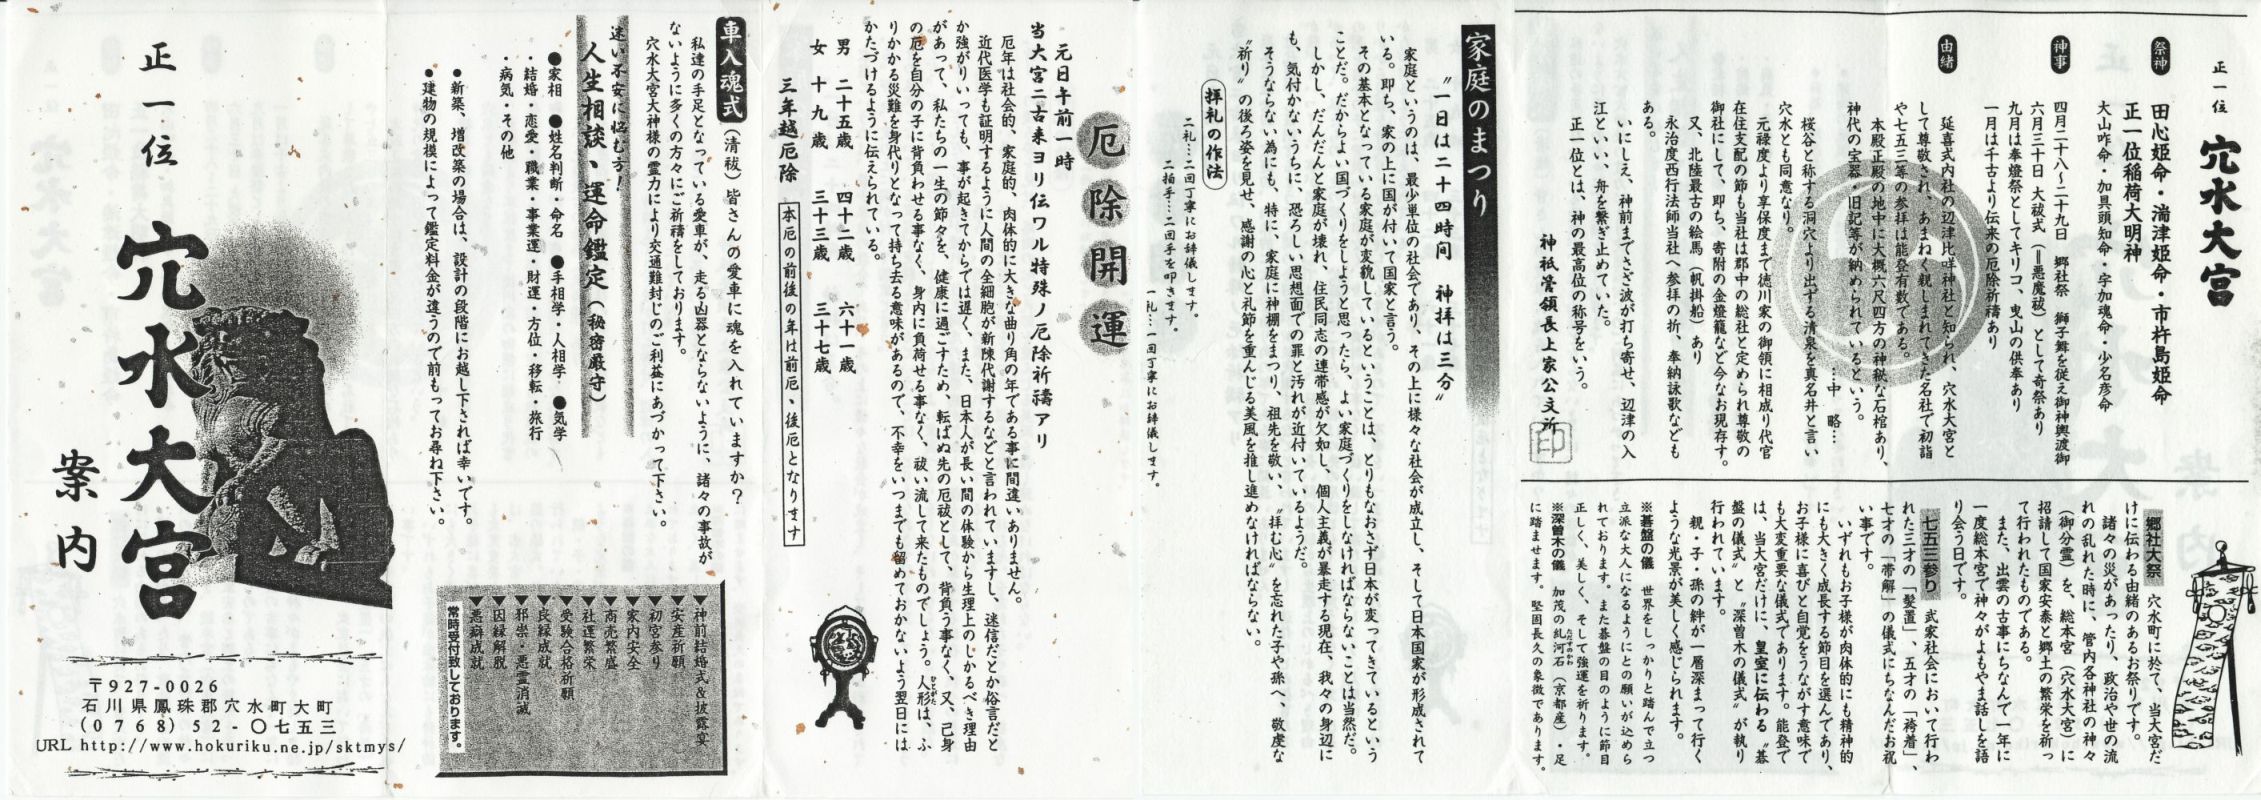 正一位 穴水大宮
祭神
田心姫命・湍津姫命・市杵島姫命
正一位稲荷大明神
大山咋命・加具頭知命・宇加魂命・少名彦命
神事
四月二十八〜二十九日 郷社祭 獅子舞を従え御神輿渡御
六月三十日 大祓式(=悪魔祓)として奇祭あり
九月は奉燈祭としてキリコ、曳山の供奉あり
一月は千古より伝来の厄除祈禱あり
由緒
延喜式内社の辺津比咩神社と知られ、穴水大宮と
して尊敬され、あまねく親しまれてきた名社で初詣
や七五三等の参拝は能登有数である。
本殿正殿の地中に大概六尺四方の神秘な石棺あり、
神代の宝器・旧記等が納められているという。
…中 略…
桜谷と称する洞穴より出する清泉を真名井と言い
穴水とも同意なり。
元禄度より享保度まで徳川家の御領に相成り代官
在住支配の節も当社は郡中の総社と定められ尊敬の
御社にして、即ち、寄附の金燈籠など今なお現存す。
又、北陸最古の絵馬(帆掛船)あり
永治度西行法師当社へ参拝の折、奉納詠歌なども
ある。
いにしえ、神前までさざ波が打ち寄せ、辺津の入
江といい、舟を繋ぎ止めていた。
正一位とは、神の最高位の称号をいう。
神祇管領長上家公文所 印
郷社大祭 穴水町に於て、当大宮だ
けに伝わる由緒のあるお祭りです。
諸々の災があったり、政治や世の流
れの乱れた時に、管内各神社の神々
(御分霊)を、総本宮(穴水大宮)に
招請して国家安泰と郷土の繁栄を祈っ
て行われたものである。
また、出雲の古事にちなんで一年に
一度総本宮で神々がよもやま話しを語
り会う日です。
七五三参り 武家社会において行わ
れた三才の「髪置」、五才の「袴着」、
七才の「帯解」の儀式にちなんだお祝
い事です。
いずれもお子様が肉体的にも精神的
にも大きく成長する節目を選んであり、
お子様に喜びと自覚をうながす意味で
も大変重要な儀式であります。能登で
は、当大宮だけに、皇室に伝わる〝碁
盤の儀式〟と〝深曽木の儀式〟が執り
行われています。
親・子・孫の絆が一層深まって行く
ような光景が美しく感じられます。
※碁盤の儀 世界をしっかりと踏んで立つ
立派な大人になるようにとの願いが込めら
れております。また碁盤の目のように節目
正しく、美しく、そして強運を祈ります。
※深曽木の儀 加茂の糺河石(京都産)・足
に踏ませます。堅固長久の象徴であります。
家庭のまつり
〝一日は二十四時間 神拝は三分〟
家庭というのは、最少単位の社会であり、その上に様々な社会が成立し、そして日本国家が形成されて
いる。即ち、家の上に国が付いて国家と言う。
その基本となっている家庭が変貌しているということは、とりもなおさず日本が変ってきているという
ことだ。だからよい国づくりをしようと思ったら、よい家庭づくりをしなければならないことは当然だ。
しかし、だんだんと家庭が壊れ、住民同志の連帯感が欠如し、個人主義が暴走する現在、我々の身辺に
も、気付かないうちに、恐ろしい思想面での罪と汚れが近付いているようだ。
そうならない為にも、特に、家庭に神棚をまつり、祖先を敬い、〝拝む心〟を忘れた子や孫へ、敬虔な
〝祈り〟の後ろ姿を見せ、感謝の心と礼節を重んじる美風を推し進めなければならない。
拝礼の作法
二礼…二回丁寧にお辞儀します。
二拍手…二回手を叩きます。
一礼…一回丁寧にお辞儀します。
厄除開運
元日午前一時
当大宮ニ古来ヨリ伝ワル特殊ノ厄除祈禱アリ
厄年は社会的、家庭的、肉体的に大きな曲り角の年である事に間違いありません。
近代医学も証明するように人間の全細胞が新陳代謝するなどと言われていますし、迷信だとか俗言だと
か強がりいっても、事が起きてからでは遅く、また、日本人が長い間の体験から生理上のしかるべき理由
があって、私たちの一生の節々を、健康に過ごすため、転ばぬ先の厄祓として、背負う事なく、又、己身
の厄を自分の子に背負わせる事なく、身内に負荷せる事なく、祓い流して来たものでしょう。人形は、ふ
りかかる災難を身代りとなって持ち去る意味があるので、不幸をいつまでも留めておかないよう翌日には
かたづけるように伝えられている。
男 二十五歳 四十二歳 六十一歳
女 十九歳 三十三歳 三十七歳
三年越厄除 本厄の前後の年は前厄、後厄となります
車入魂式(清祓)皆さんの愛車に魂を入れていますか?
私達の手足となっている愛車が、走る凶器とならないように、諸々の事故が
ないように多くの方々にご祈禱をしております。
穴水大宮大神様の霊力により交通難封じのご利益にあづかって下さい。
迷い不安に悩む方!
人生相談、運命鑑定(秘密厳守)
●家相 ●姓名判断・命名 ●手相学・人相学 ●気学
・結婚・恋愛・職業・事業運・財運・方位・移転・旅行
・病気・その他
●新築、増改築の場合は、設計の段階にお越し下されば幸いです。
●建物の規模によって鑑定料金が違うので前もってお尋ね下さい。
▼神前結婚式&披露宴
▼安産祈願
▼初宮参り
▼家内安全
▼商売繁盛
▼社運繁栄
▼受験合格祈願
▼良縁成就
▼邪祟・悪霊消滅
▼因縁解脱
▼悪癖成就
常時受付致しております。
正一位
穴水大宮
案内
〒927-0026
石川県鳳珠郡穴水町大町
(0768)52-〇七五三
URL http://www.hokuriku.ne.jp/sktmys/